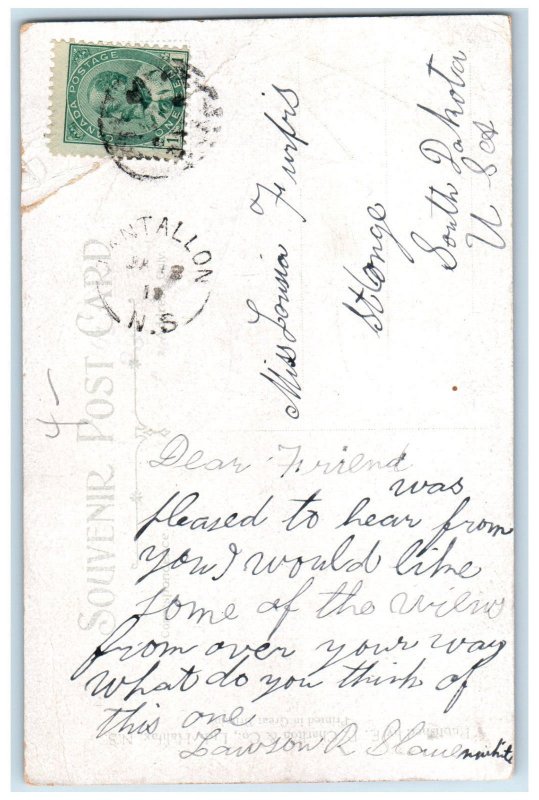 CANADA POSTAGE
ONE CENT
TANTALLON
N.S
SOUVENIR POST CARD
Miss Lousia Furfis
St Onge
South Dakota
U S A
4-
Dear Friend
was
pleased to hear from
you I would like
some of the views
from over your way
What do you think of
this one
Lawson R Slauenwhite
Printed in Great Britain